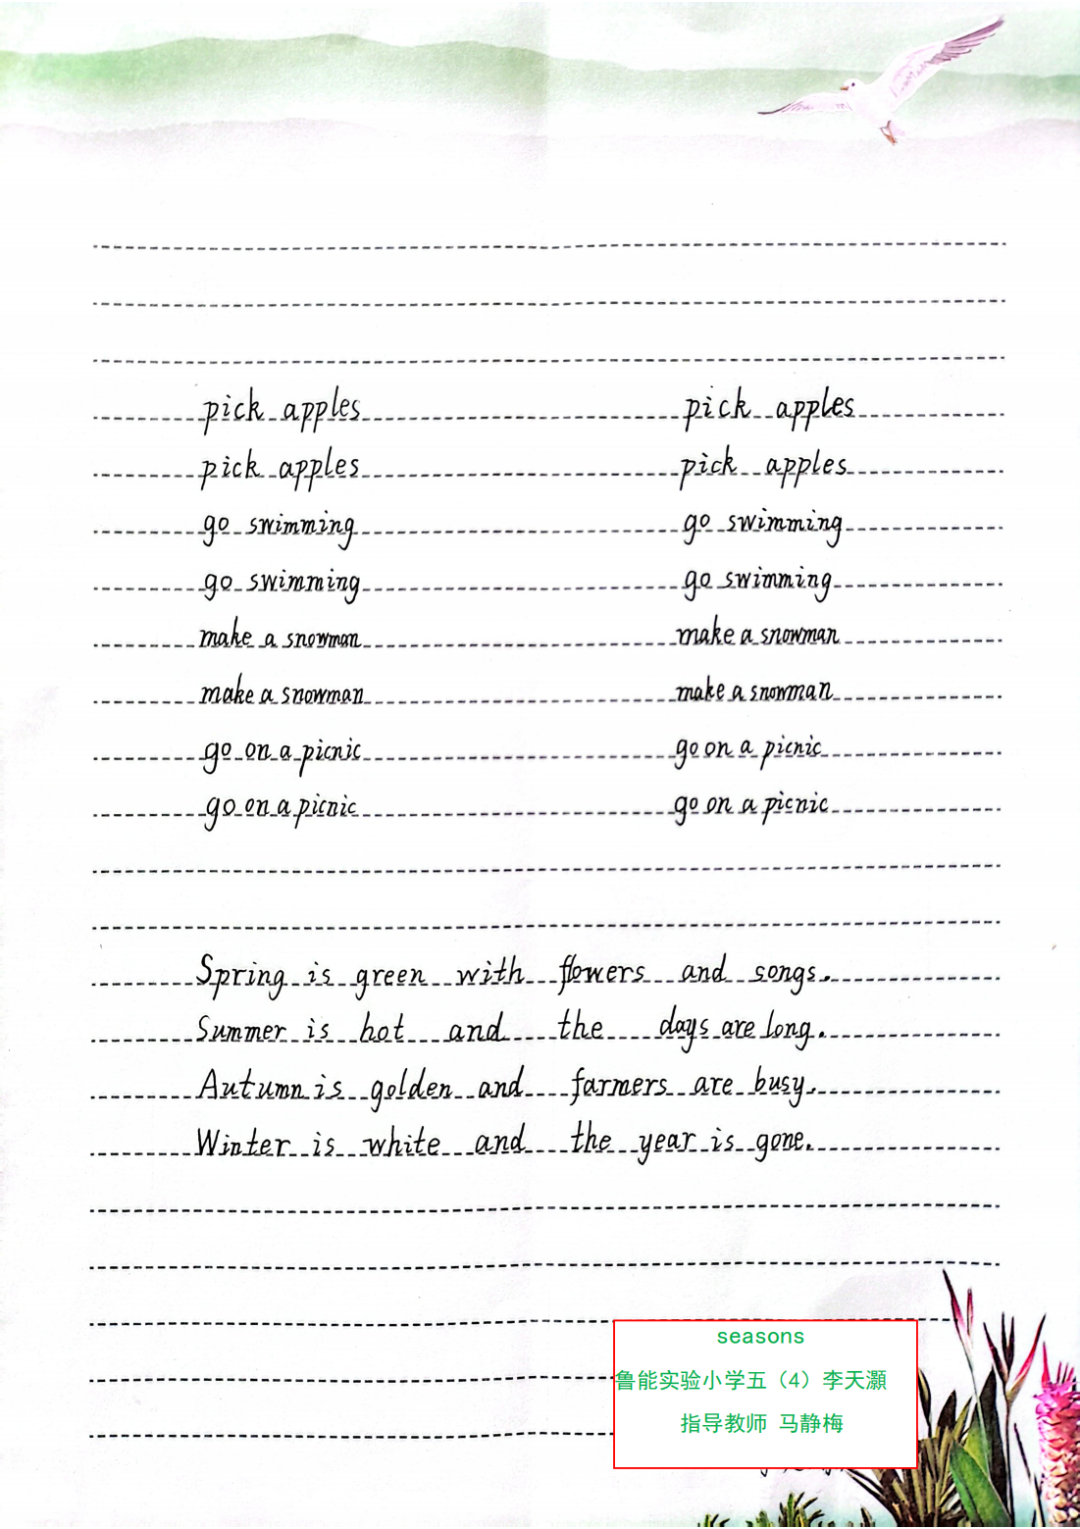 pick apples pick apples
pick apples pick apples
go swimming go swimming
go swimming go swimming
make a snowman make a snowman
make a snowman make a snowman
go on a picnic go on a picnic
go on a picnic go on a picnic
Spring is green with flowers and songs.
Summer is hot and the days are long.
Autumn is golden and farmers are busy.
Winter is white and the year is gone.
seasons
鲁能实验小学五（4）李天灏
指导教师 马静梅